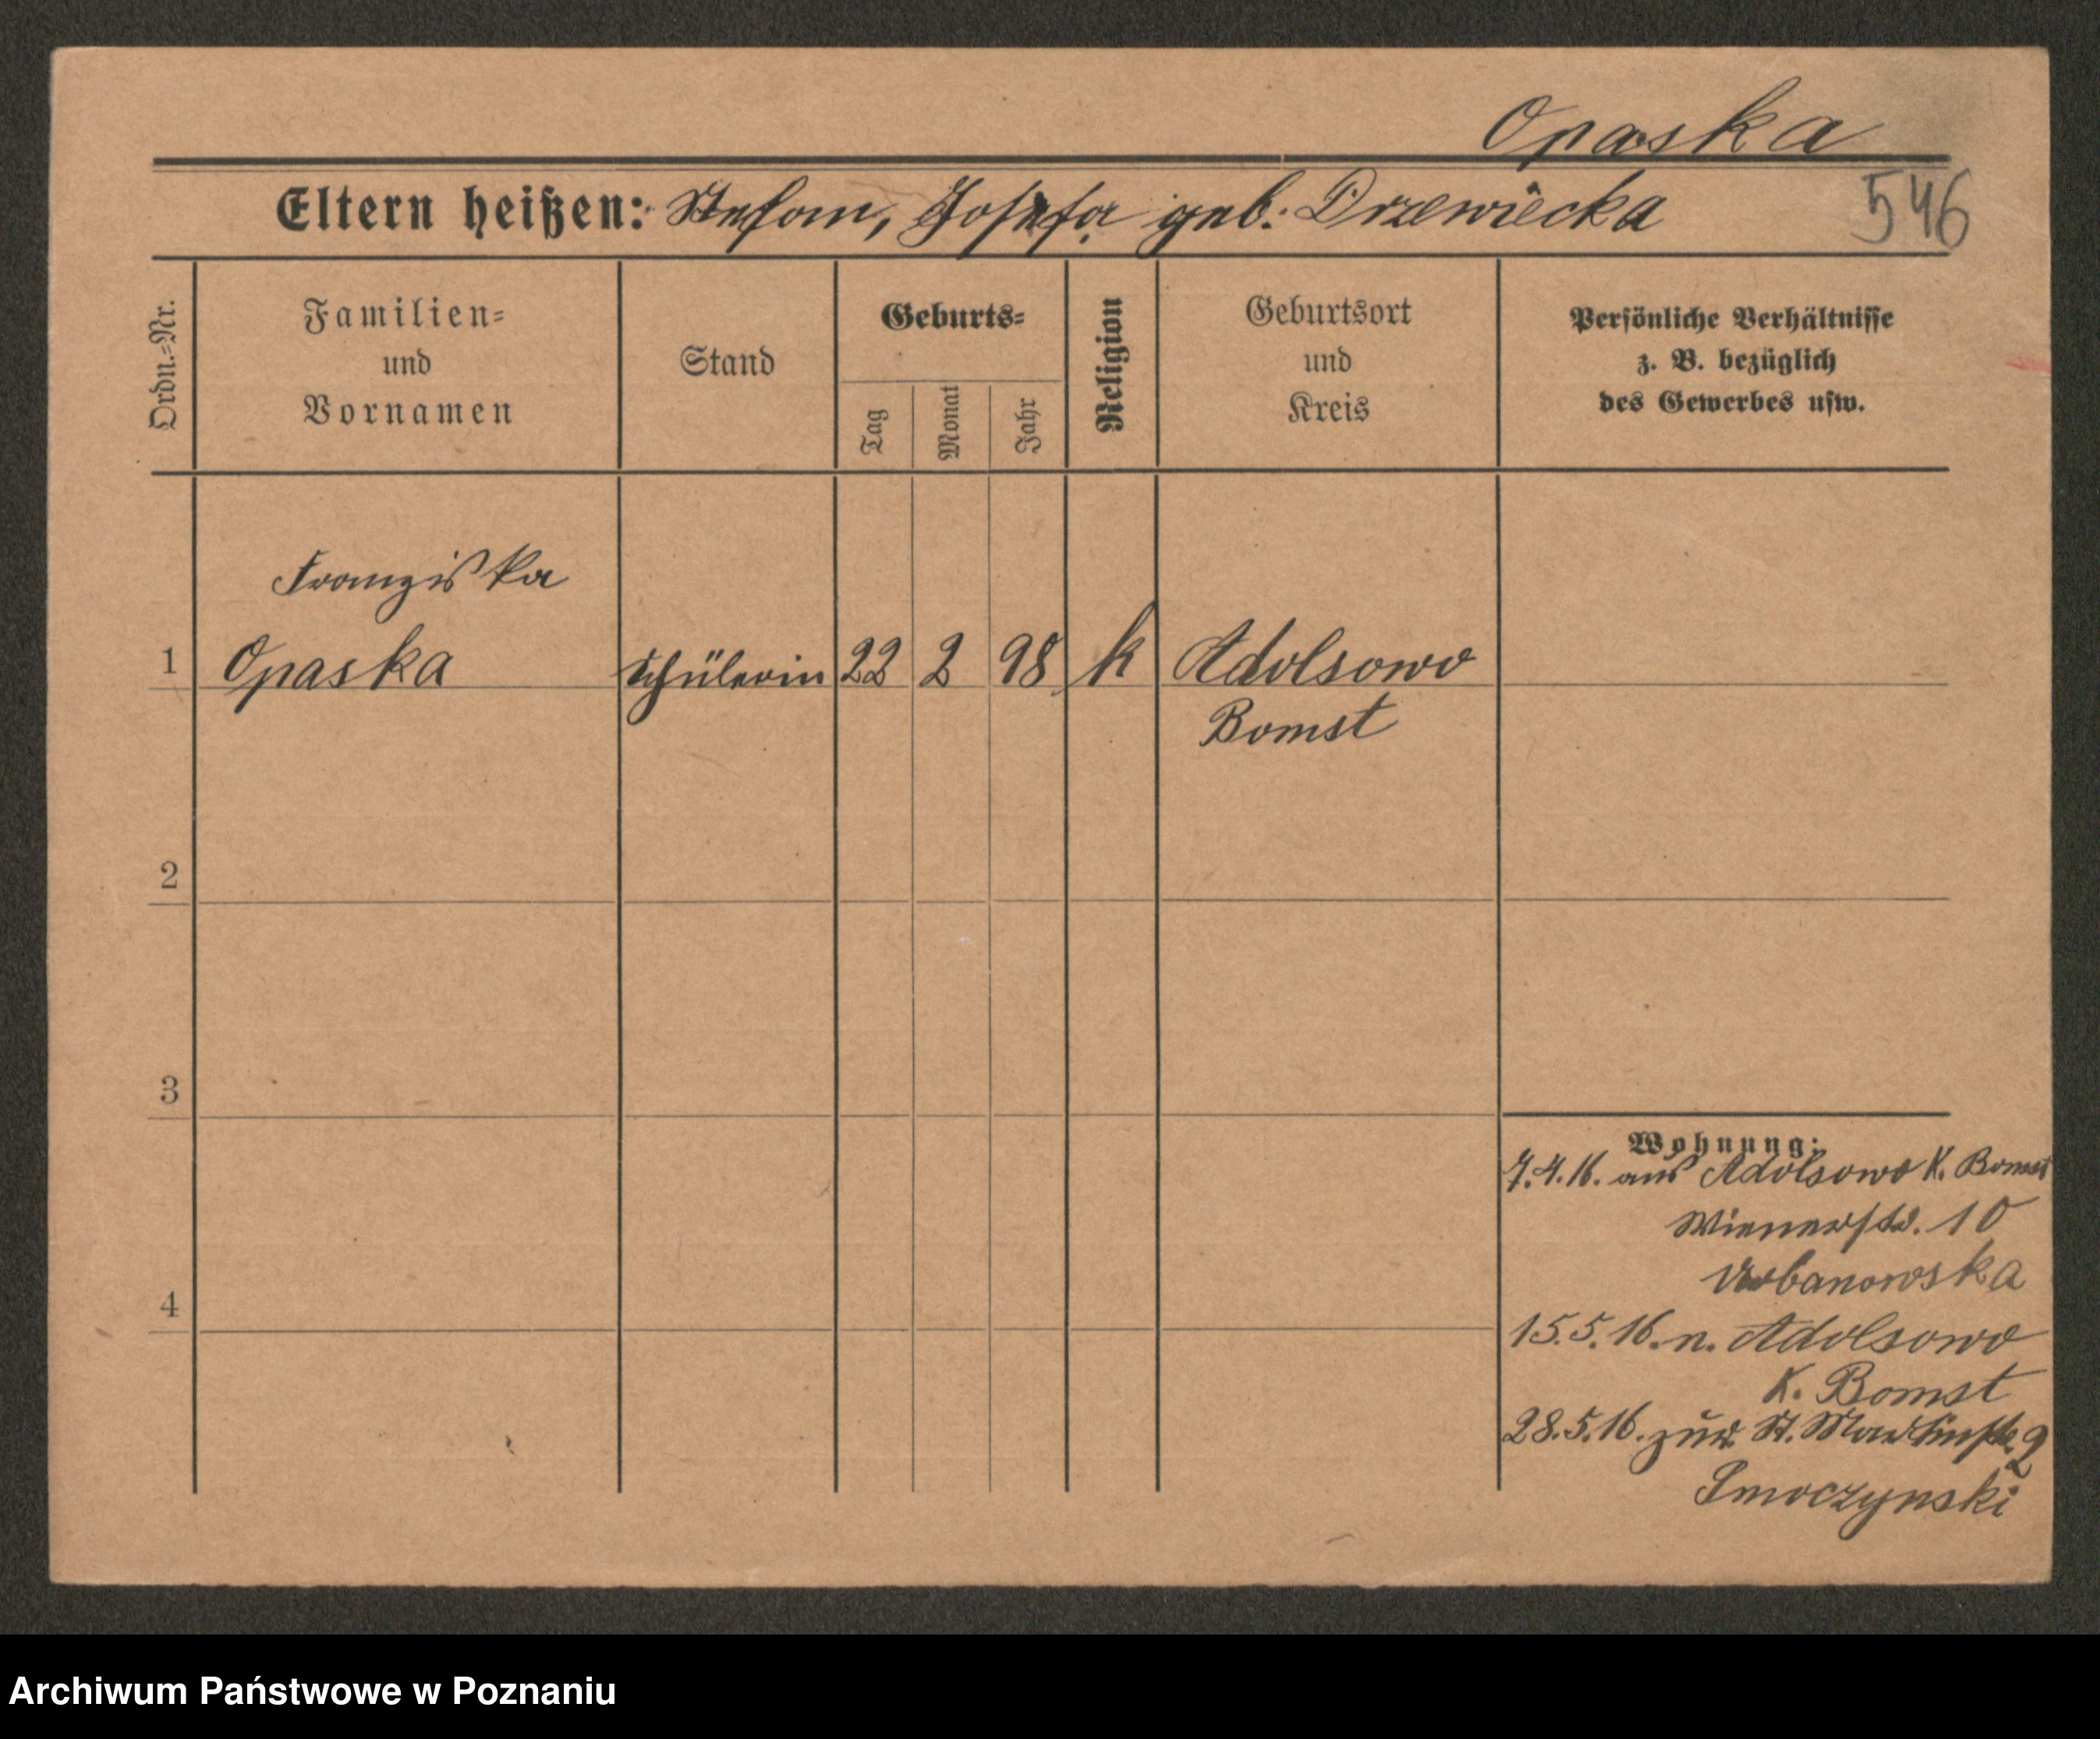 Opaska
Eltern heißen: Stefan, Josefa geb. Drzewiecka 546
Ordn.=Nr.
Familien= und Vornamen
Stand
Geburts=
Tag
Monat
Jahr
Religion
Geburtsort und Kreis
Persönliche Verhältnisse
z. B. bezüglich
des Gewerbes usw.
Franziska
1 Opaska Schülerin 22 2 98 k Adolsowo
Bomst
2
3
4
Wohnung:
7.4.16. aus Adolsowo K. Bomst
Wienerstr. 10
Urbanowska
15.5.16. n. Adolsowo
K. Bomst
28.5.16. zur. St. Martinstr. 2
Smoczynski
Archiwum Państwowe w Poznaniu